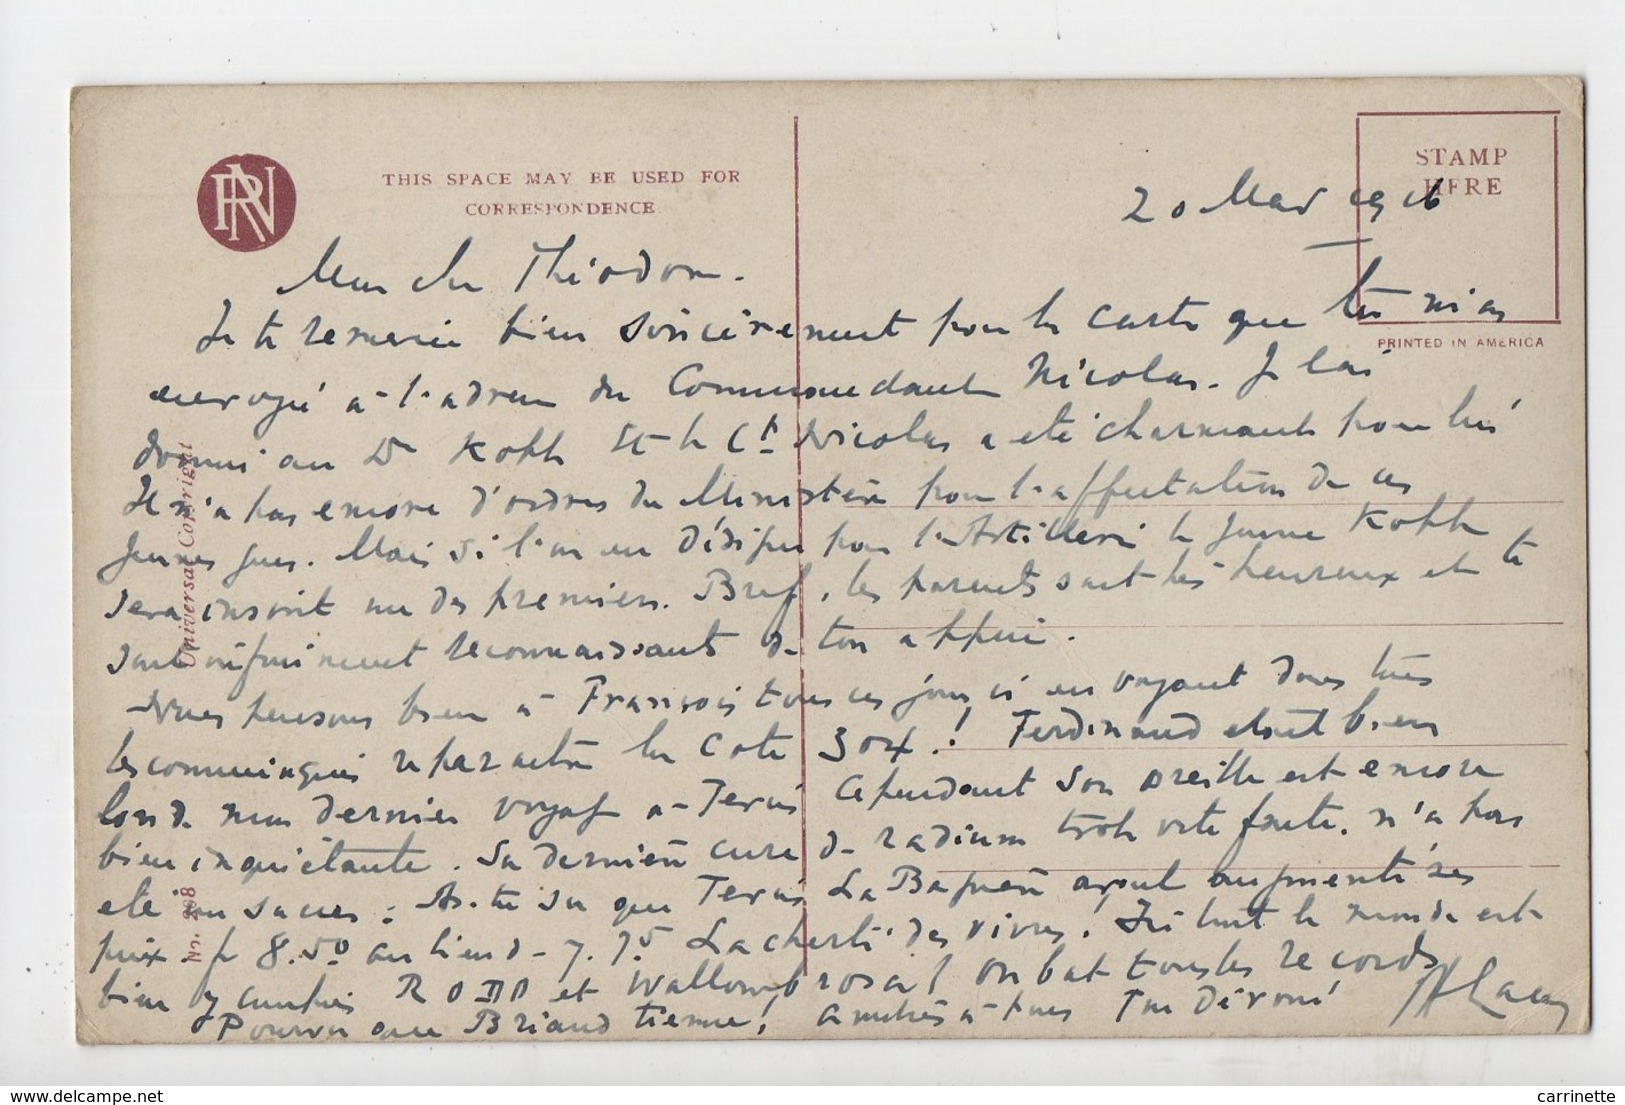 RN
THIS SPACE MAY BE USED FOR
CORRESPONDENCE
STAMP
HERE
PRINTED IN AMERICA
Universal Copyright
No. 288
20 Mai 1916
Mon cher Théodore.
Je te remercie bien sincèrement pour la carte que tu m'as
envoyé à l'adresse du Commandant Nicolas. Je l'ai
donné au Dr Kopp et le Ct Nicolas a été charmant pour lui
Il n'a pas encore d'ordres du Ministère pour l'affectation de ces
jeunes gens. Mais si l'on en désigne pour l'Artillerie le jeune Kopp
sera inscrit un des premiers. Bref, les parents sont très heureux et te
sont infiniment reconnaissants de ton appui.
Nous pensons bien à François tous ces jours ci en voyant dans tous
les communiqués reparaître la Cote 304! Ferdinand était bien
lors de mon dernier voyage à Cependant son oreille est encore
bien inquiétante. Sa dernière cure de radium trop vite faite, n'a pas
eté un succès: As-tu su que La Baignerie ayant augmenté ses
prix. fr 8.50 au lieu de 7.75 La cherté des vivres! Ici tout le monde est
bien y compris et Wallombrosa! On bat tous les records
Pourvu que Briand tienne! Amitiés à tous Ton dévoué